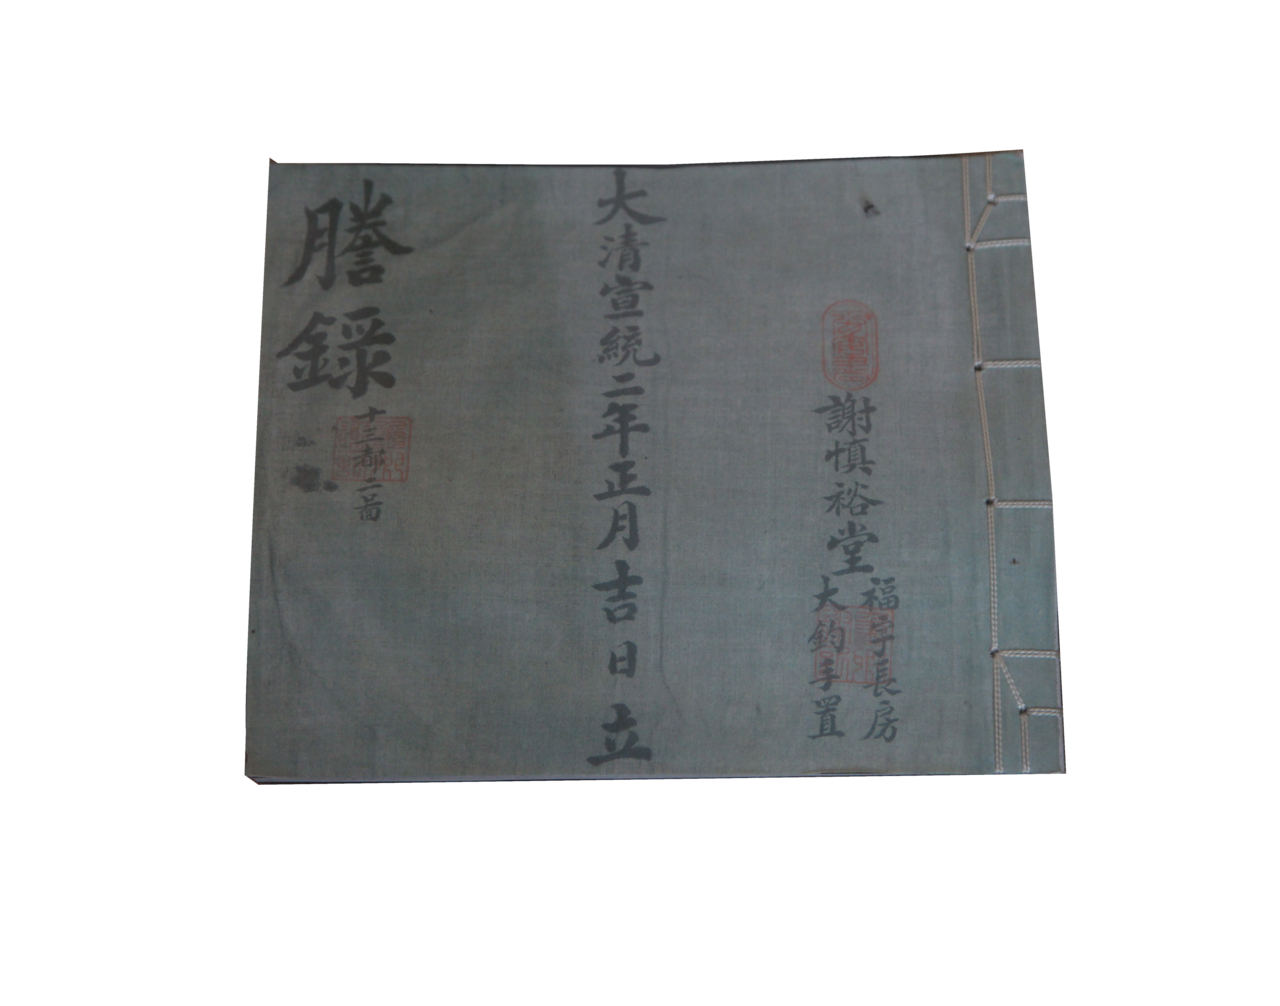 謝慎裕堂
福字長房
大鈞手置
大清宣統二年正月吉日立
謄錄
十三都二啚